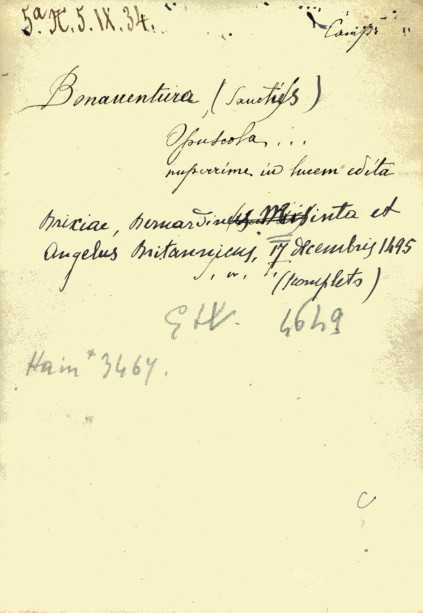 5ª N. 5. IX. 34.
Comp.
Bonaventura, (Sanctus)
Opuscola...
nuperrime in lucem edita
Brixiae, Bernardinus Misinta et
Angelus Britannicus, 17 decembris 1495
(Komplets)
GW. 4649
Hain* 3467.
C